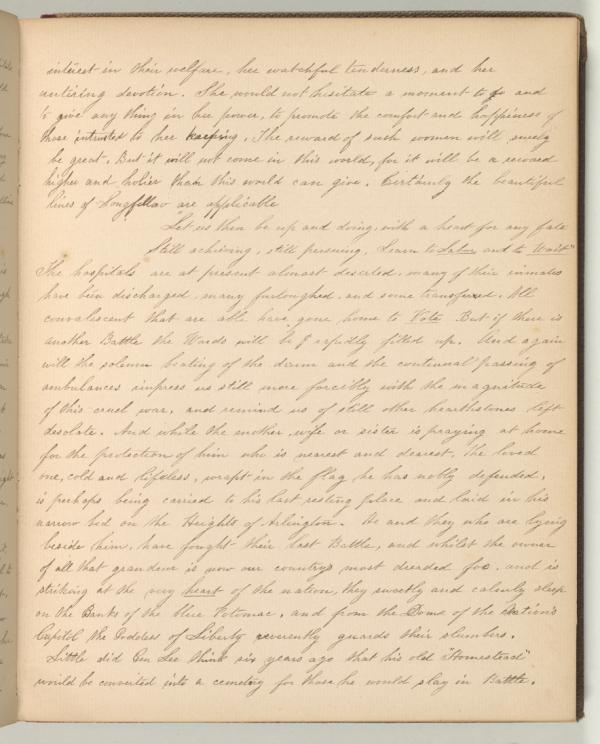 interest in their welfare, her watchful tenderness, and her
untiring devotion. She would not hisitate a moment to go and
to give any thing in her power, to promote the comfort and happiness of
those intrusted to her keeping. The reward of such women will surely
be great. But it will not come in this world, for it will be a reward
higher and holier than this world can give. Certainly the beautiful
lines of Longfellow are applicable
"Let us then be up and doing, with a heart for any fate
Still achieving, still persuing, Learn to Labor and to Wait"
The hospitals are at present almost deserted, many of their inmates
have been discharged, many furloughed, and some transfered. All
convalescent that are able have gone home to Vote. But if there is
another Battle the Wards will be rapidly filled up. And again
will the solemn beating of the drum and the continual passing of
ambulances impress us still more forceibly with the magnitude
of this cruel war, and remind us of still other hearthstones left
desolate. And while the mother, wife or sister is praying at home
for the protection of him who is nearest and dearest, the loved
one, cold and lifeless, wrapt in the flag he has nobly defended,
is perhaps being carried to his last resting place and laid in his
narrow bed on the Heights of Arlington. He and they who are lying
beside him, have fought their last Battle, and whilst the owner
of all that grandeur is now our countrys most dreaded foe, and is
striking at the very heart of the nation, they sweetly and calmly sleep
on the Banks of the blue Potomac, and from the Dome of the Nation's
Capitol the Goddess of Liberty reverently guards their slumbers.
Little did Gen Lee think six years ago that his old "Homestead"
would be converted into a cemetery for those he would slay in Battle.